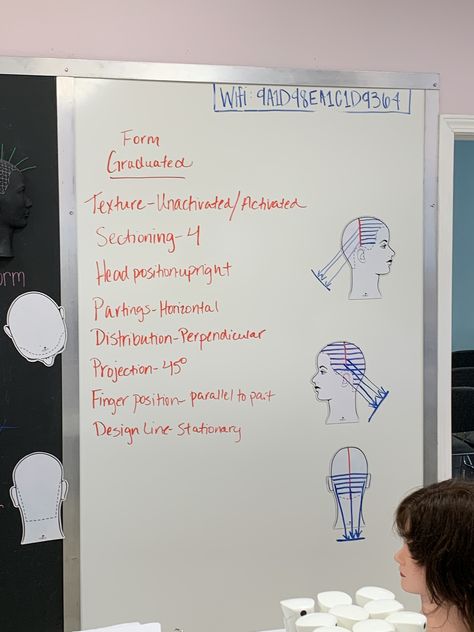 Wifi: 9A1D98EA1C1D9364
Form
Graduated
Texture-Unactivated/Activated
Sectioning-4
Head position-upright
Partings-Horizontal
Distribution-Perpendicular
Projection-45°
Finger position- parallel to part
Design Line-Stationary
orm